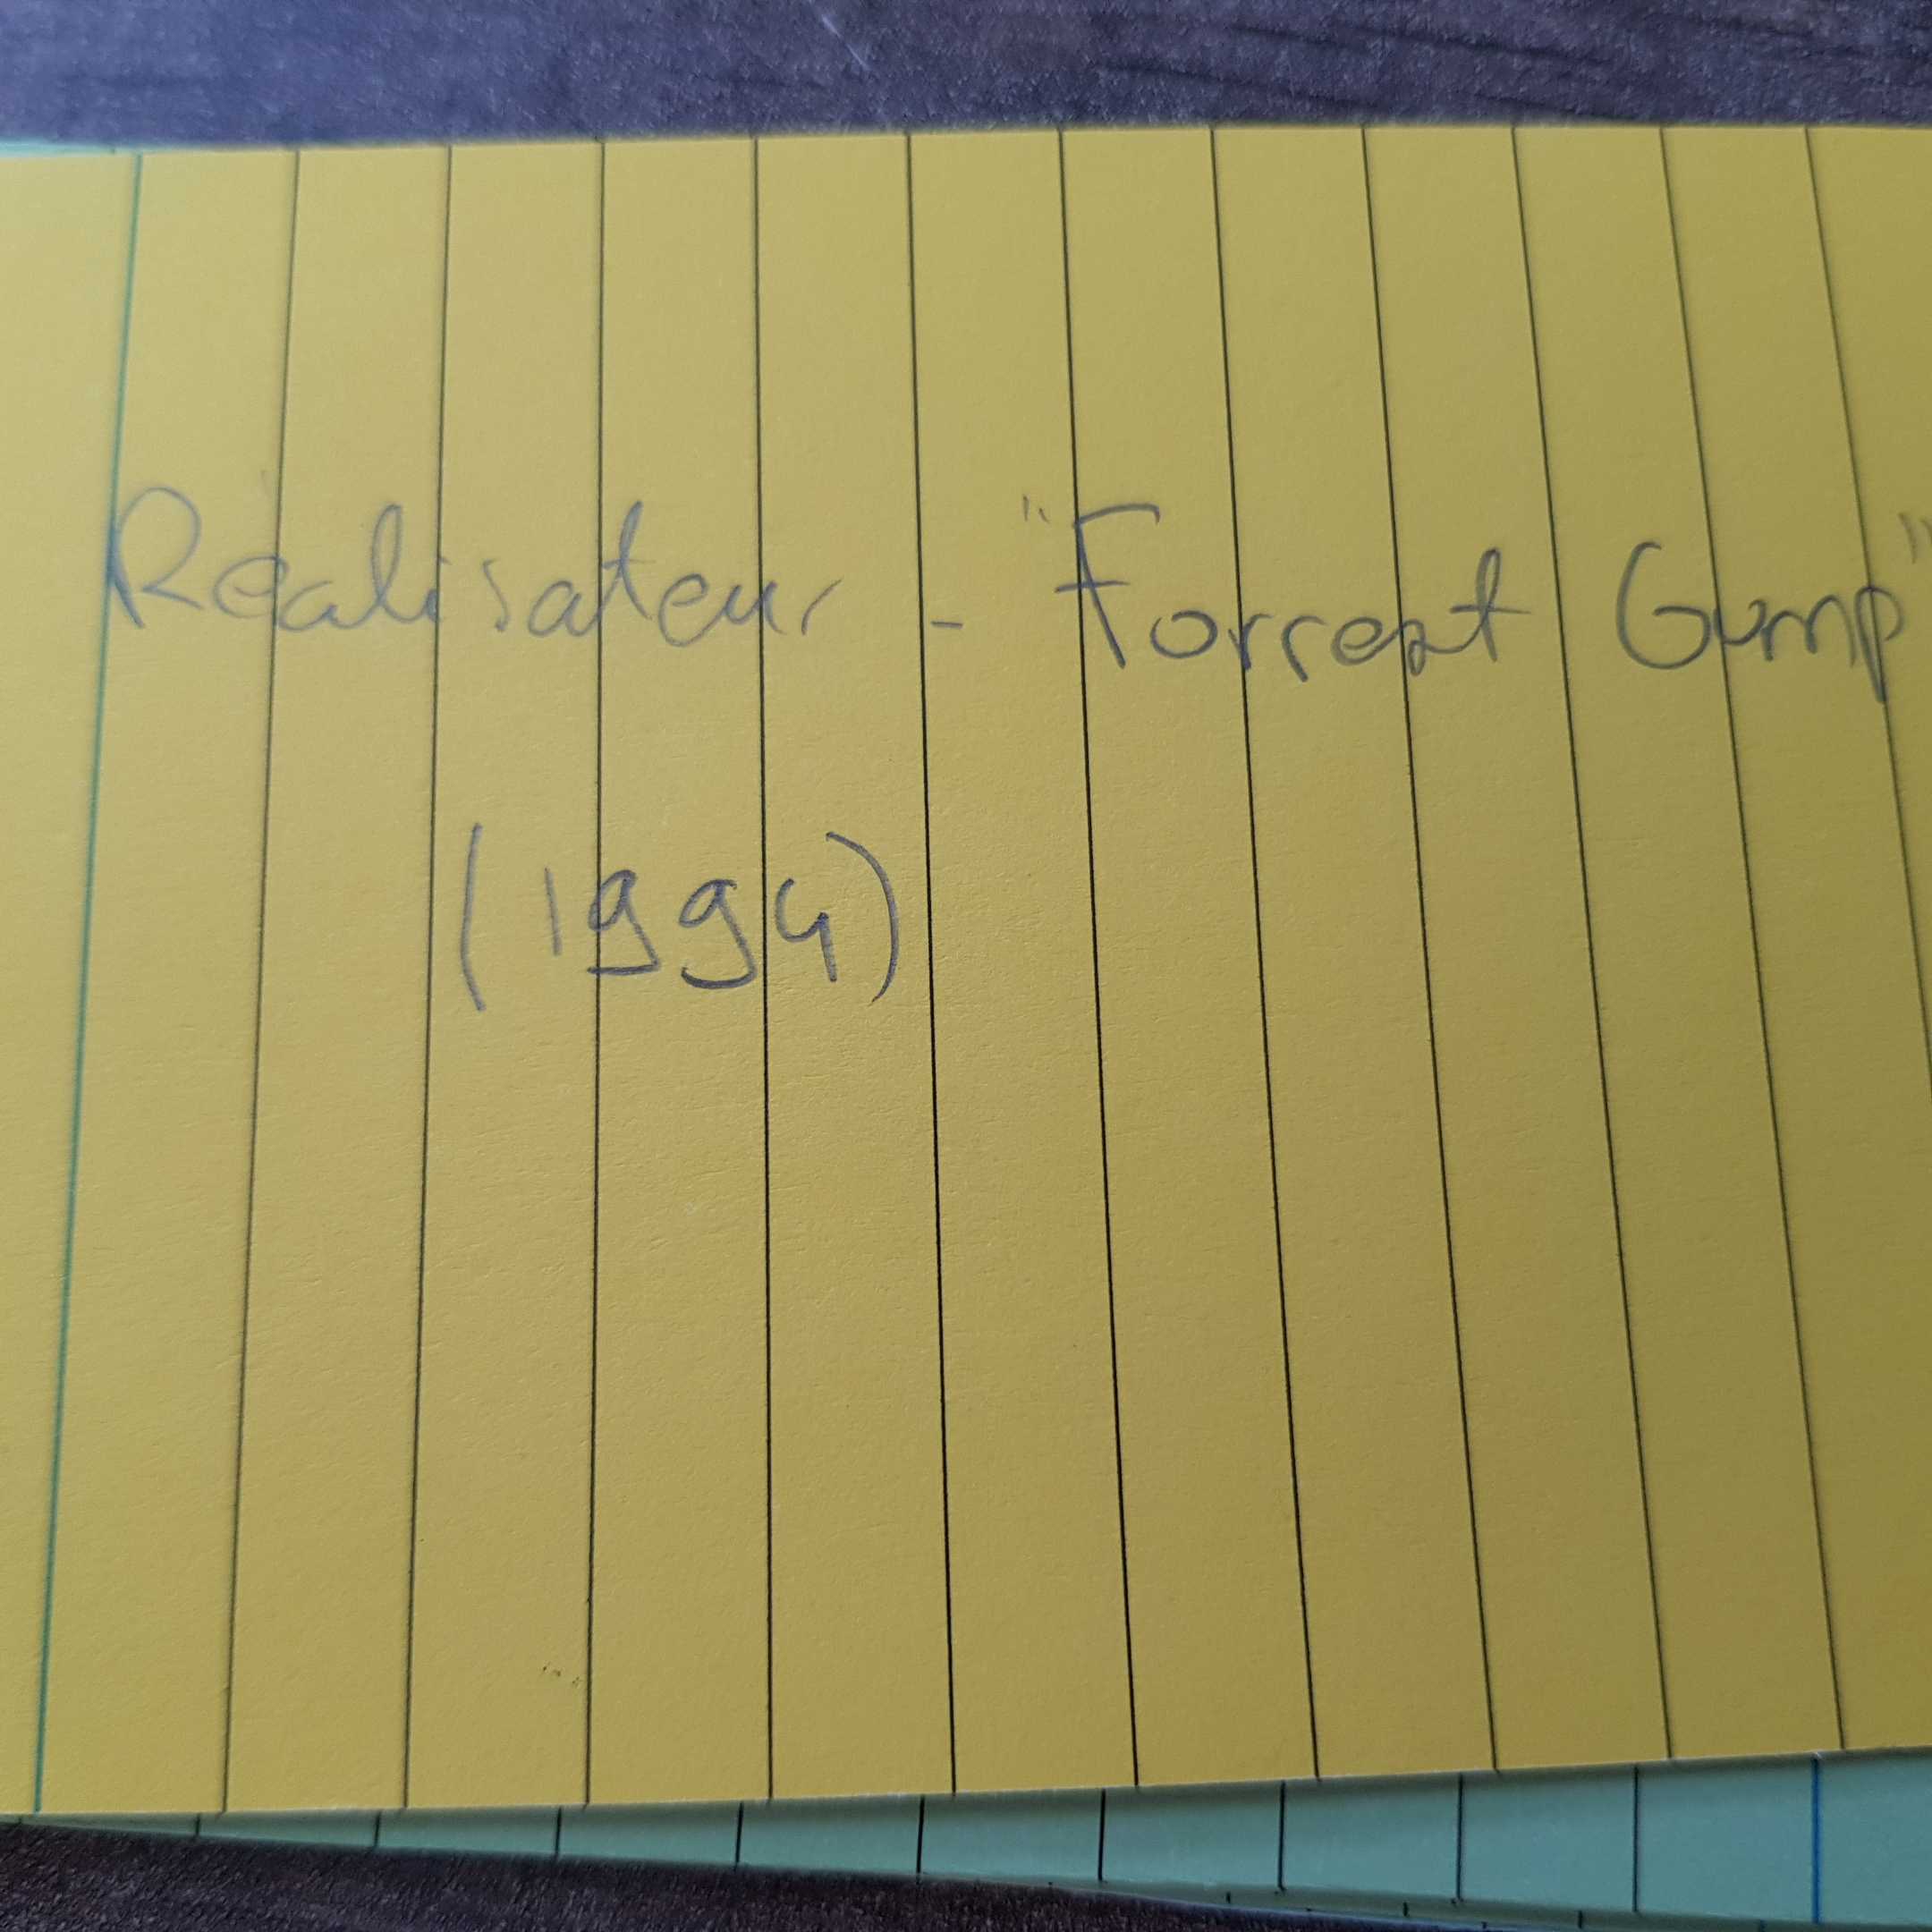 Réalisateur - "Forrest Gump"
(1994)